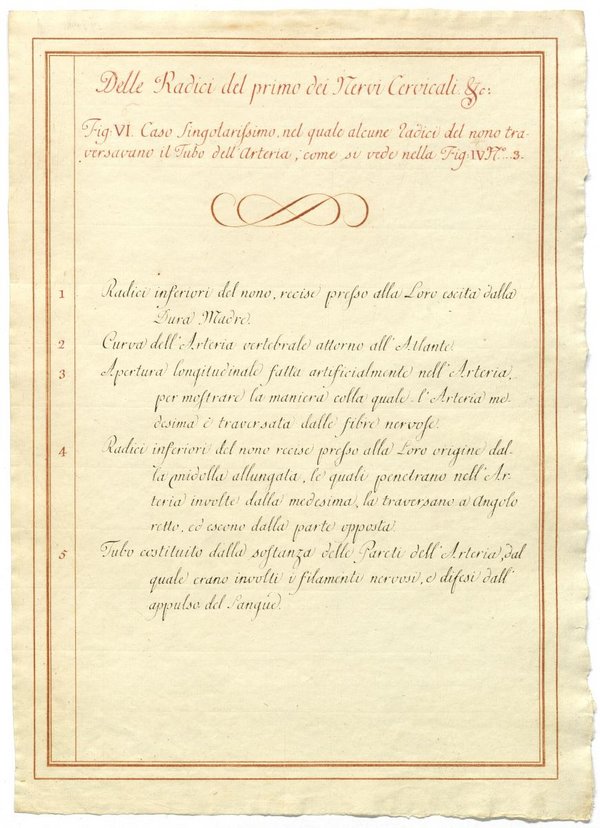 Delle Radici del primo dei Nervi Cervicali. &c:
Fig: VI. Caso singolarissimo, nel quale alcune radici del nono tra-
versavano il Tubo dell'Arteria, come si vede nella Fig: IV N.o 3.
1 Radici inferiori del nono, recise presso alla Loro escita dalla
Dura Madre.
2 Curva dell'Arteria vertebrale attorno all'Atlante.
3 Apertura longitudinale fatta artificialmente nell'Arteria,
per mostrare la maniera colla quale l'Arteria me-
desima è traversata dalle fibre nervose.
4 Radici inferiori del nono recise presso alla Loro origine dal-
la midolla allungata, le quali penetrano nell'Ar-
teria involte dalla medesima, la traversano a Angolo
retto, ed escono dalla parte opposta.
5 Tubo costituito dalla sostanza delle Pareti dell'Arteria, dal
quale erano involti i filamenti nervosi, e difesi dall'
appulso del Sangue.